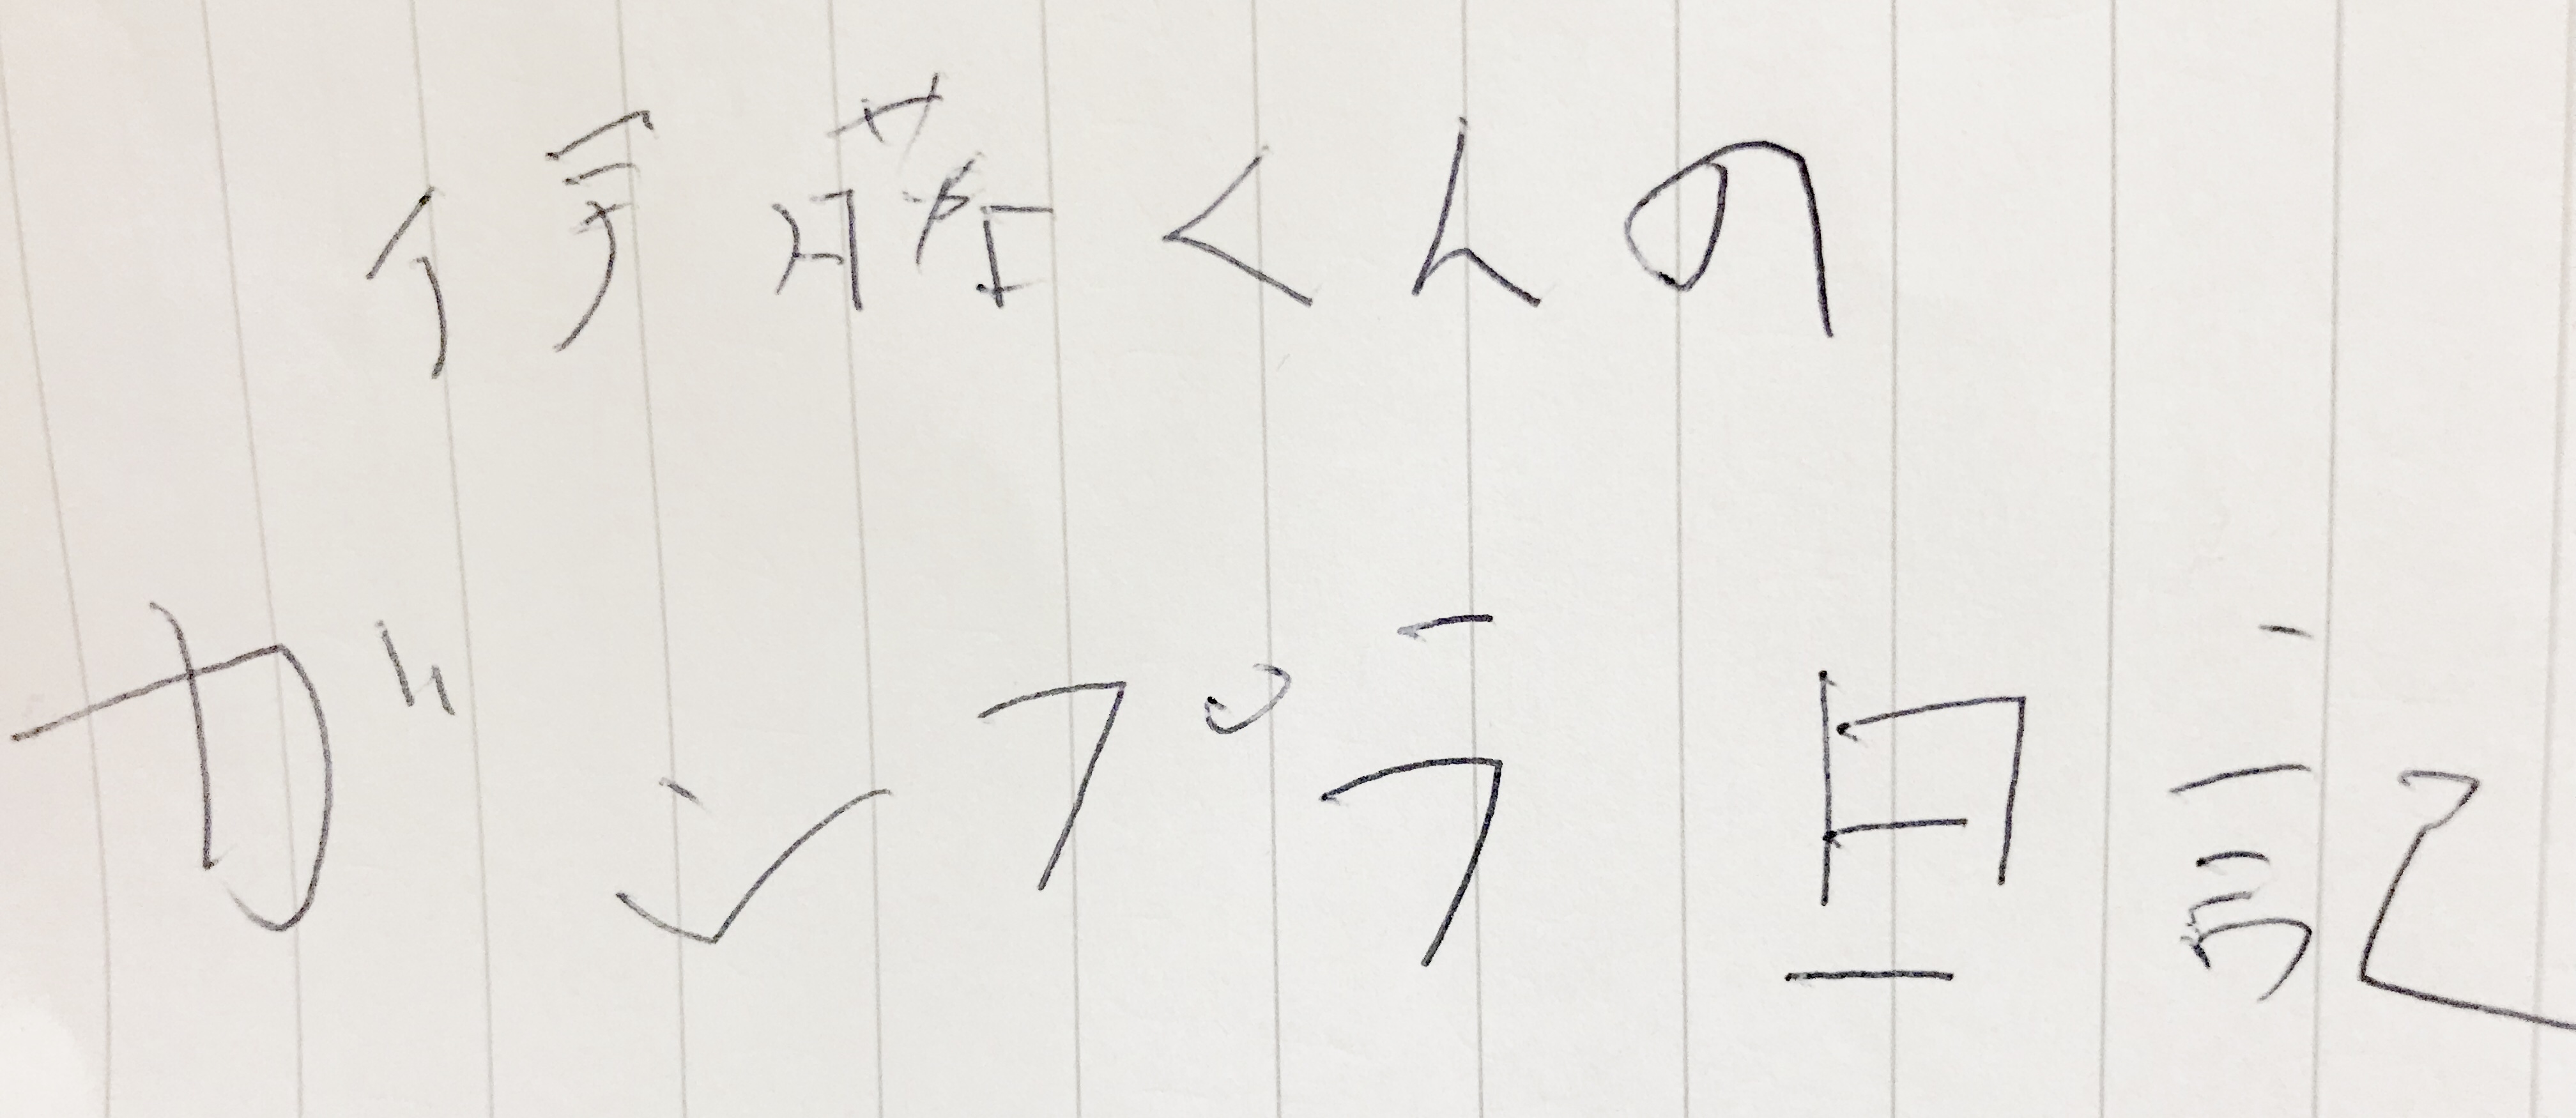 伊藤くんの
ガンプラ日記